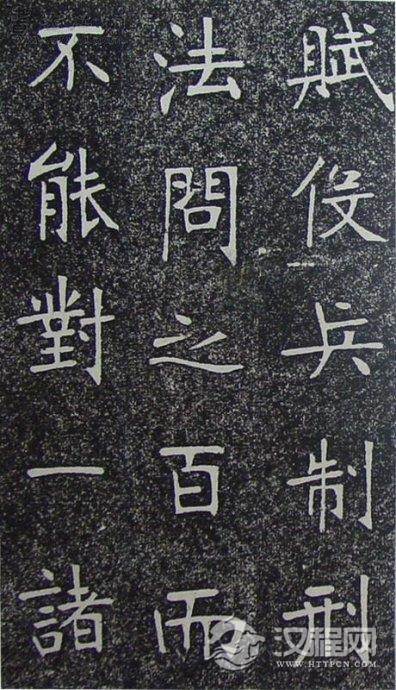 賦役兵制刑
法問之百而
不能對一諸
汉程网
WWW.HTTPCN.COM